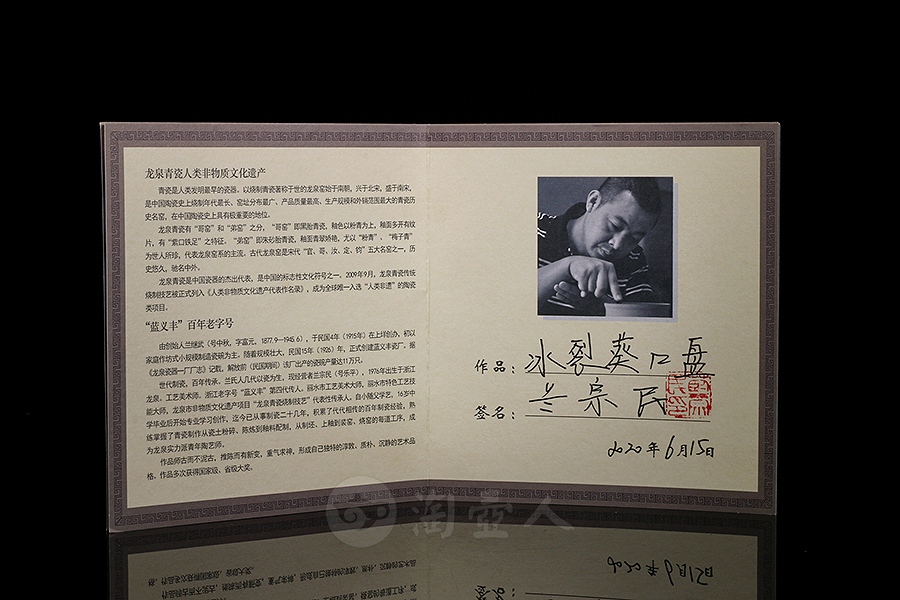 龙泉青瓷人类非物质文化遗产
青瓷是人类发明最早的瓷器。以烧制青瓷著称于世的龙泉窑始于南朝，兴于北宋，盛于南宋，
是中国陶瓷史上烧制年代最长、窑址分布最广、产品质量最高、生产规模和外销范围最大的青瓷历
史名窑，在中国陶瓷史上具有极重要的地位。
龙泉青瓷有“哥窑”和“弟窑”之分，“哥窑”即黑胎青瓷，釉色以粉青为上，釉面多开有纹
片，有“紫口铁足”之特征，“弟窑”即朱砂胎青瓷，釉面青翠娇艳，尤以“粉青”、“梅子青”
为世人所珍，代表龙泉窑系的主流。古代龙泉窑是宋代“官、哥、汝、定、钧”五大名窑之一，历
史悠久，驰名中外。
龙泉青瓷是中国瓷器的杰出代表，是中国的标志性文化符号之一，2009年9月，龙泉青瓷传统
烧制技艺被正式列入《人类非物质文化遗产代表作名录》，成为全球唯一入选“人类非遗”的陶瓷
类项目。
“蓝义丰”百年老字号
由创始人兰继武（号中秋，字富元，1877.9—1945.6），于民国4年（1915年）在上垟创办，初以
家庭作坊式小规模制造瓷碗为主，随着规模壮大，民国15年（1926）年，正式创建蓝义丰瓷厂，据
《龙泉瓷器一厂厂志》记载，解放前（民国期间）该厂出产的瓷碗产量达11万只。
世代制瓷，百年传承，兰氏人几代以瓷为生，现经营者兰宗民（号乐平），1976年出生于浙江
龙泉，工艺美术师，浙江老字号“蓝义丰”第四代传人、丽水市工艺美术大师、丽水市特色工艺技
能大师，龙泉市非物质文化遗产项目“龙泉青瓷烧制技艺”代表性传承人。自小随父学艺，16岁中
学毕业后开始专业学习创作，迄今已从事制瓷二十几年，积累了代代相传的百年制瓷经验，熟
练掌握了青瓷制作从瓷土粉碎、陈炼到釉料配制，从制坯、上釉到装窑、烧窑的每道工序，成
为龙泉实力派青年陶艺师。
作品师古而不泥古，推陈而有新变，重气求神，形成自己独特的淳敦、质朴、沉静的艺术品
格，作品多次获得国家级、省级大奖。
作品：冰裂葵口盘
签名：兰宗民
2020年6月15日
淘壶人